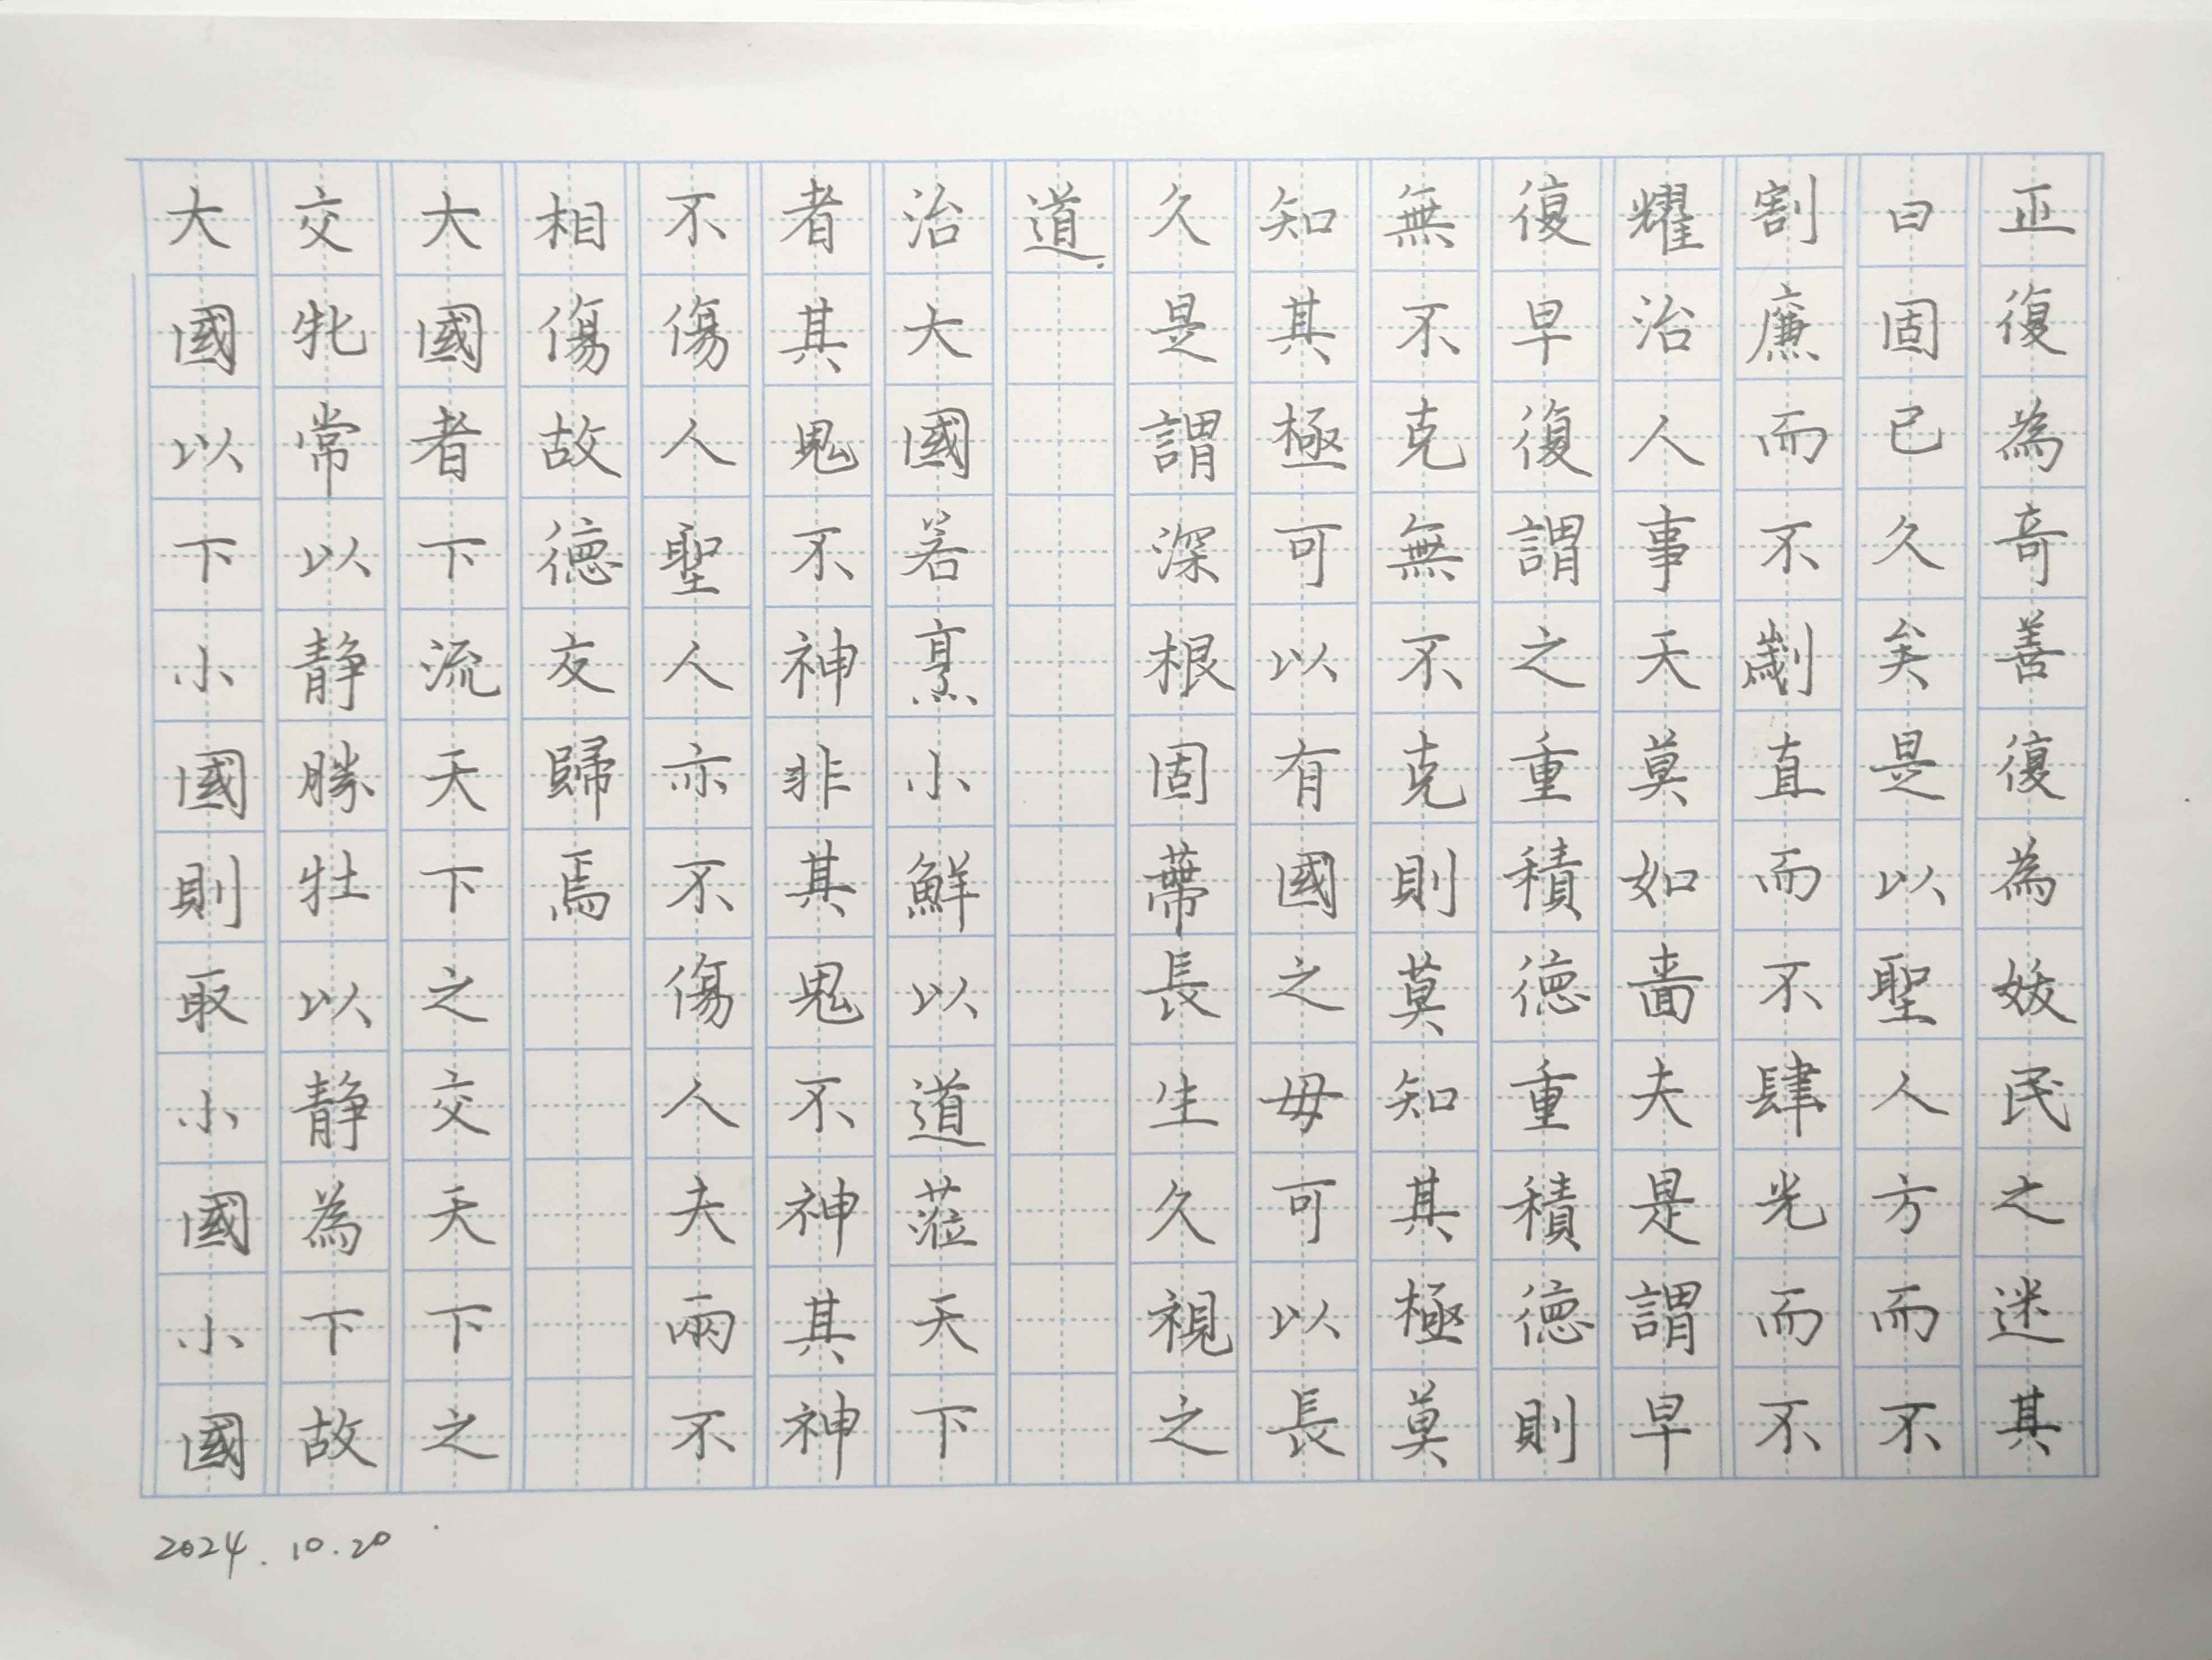 正復為奇善復為妭民之迷其
曰固已久矣是以聖人方而不
割廉而不劌直而不肆光而不
耀治人事天莫如嗇夫是謂早
復早復謂之重積德重積德則
無不克無不克則莫知其極莫
知其極可以有國之母可以長
久是謂深根固蔕長生久視之
道.
治大國若烹小鮮以道蒞天下
者其鬼不神非其鬼不神其神
不傷人聖人亦不傷人夫兩不
相傷故德交歸焉
大國者下流天下之交天下之
交牝常以靜勝牡以靜為下故
大國以下小國則取小國小國
2024.10.20